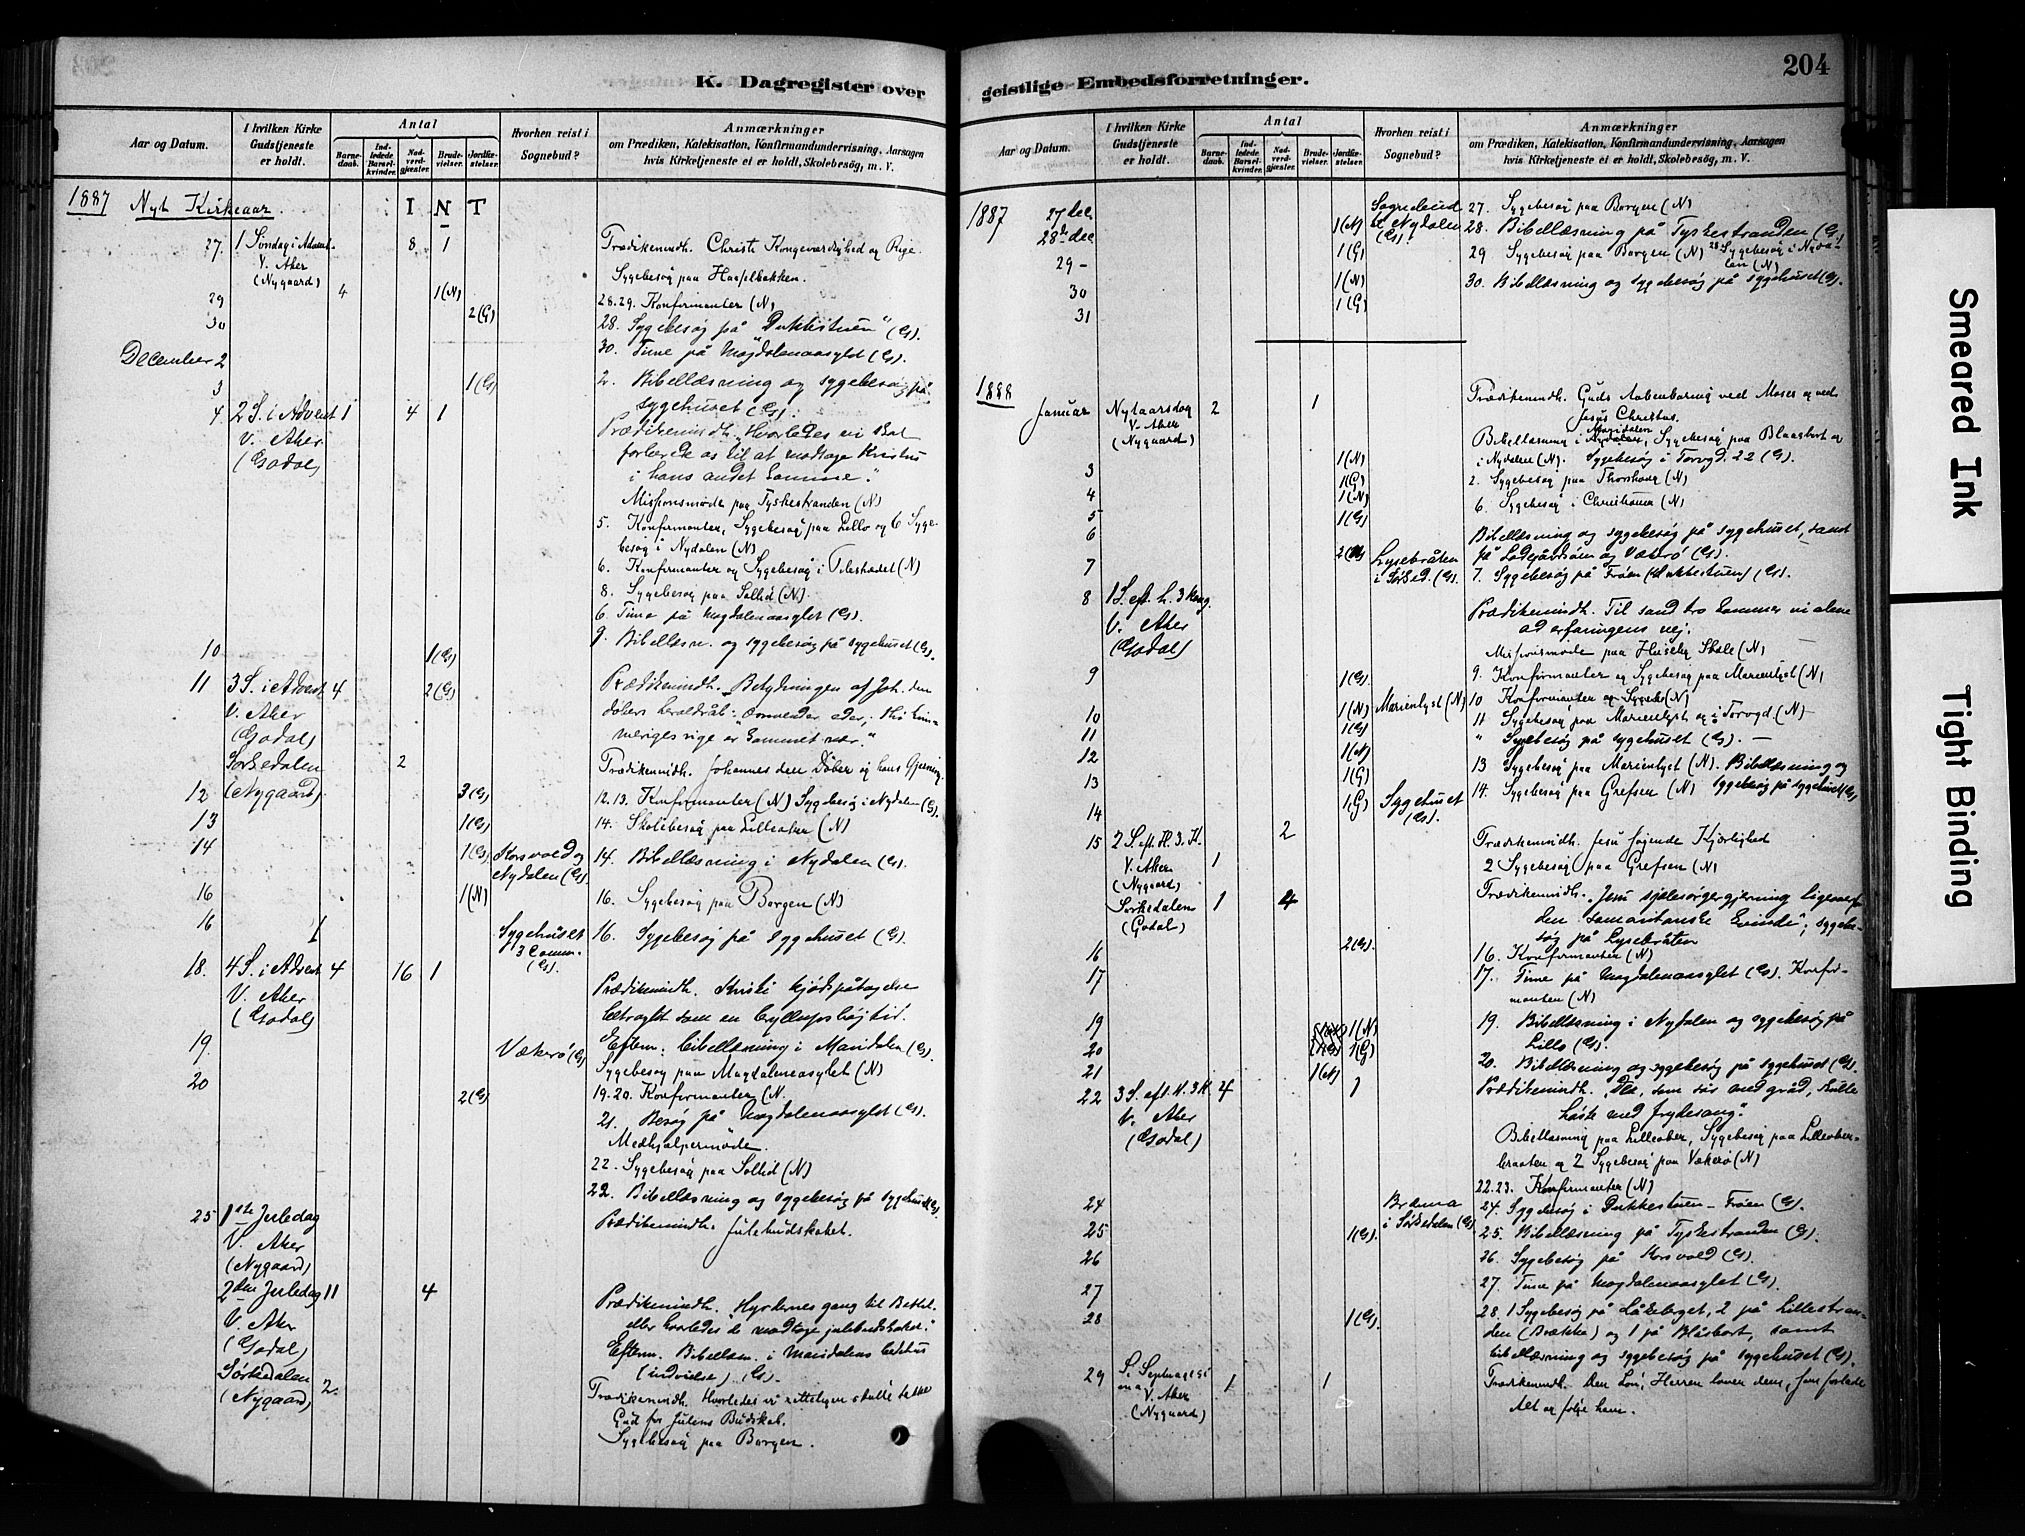 204
K. Dagregister over
Aar og Datum.
I hvilken Kirke
Gudstjeneste
er holdt.
Antal
Barne-
daab.
Ind-
ledede
Barsel-
kvinder.
Nad-
verd-
gjæster.
Brude-
vielser.
Jordfæ-
stelser.
Hvorhen reist i
Sognebud?
Anmærkninger
om Prædiken, Katekisation, Konfirmandundervisning, Aarsagen
hvis Kirketjeneste ei er holdt, Skolebesög, m. V.
1887 Nyt Kirkeaar. I N T
27. 1 Søndag i Advent 8 1 Prædikenindh. Christi Kongeværdighed og Rige.
V. Aker
(Nygaard) Sygebesøg paa Hasselbakken.
29 4 1(N) 28.29. Konfirmanter (N)
30 2(G) 28. Sygebesøg på "Dukkestuen" (G).
December 2 30. Time på Magdalenaasylet (G).
3 1(G) 2. Bibellæsning og sygebesøg på
sygehuset (G).
4 2 S. i Advent 1 4 1 Prædikenindh. Hvorledes en Bot
V. Aker
(Godal)
i hans andet komme."
Missionsmøde paa Tyskestranden (N)
5. Konfirmanter, Sygebesøg paa Lillo og 6 Syge-
besøg i Nydalen (N)
6. Konfirmanter og Sygebesøg i (N)
8. Sygebesøg paa Sollid (N).
6. Time på Magdalenaasylet (G).
9. Bibellæsn. og sygebesøg på sygehuset (G).
10 1(G)
11 3 S. i Advent 4 2(G) Prædikenindh. Betydningen af Joh. den
V. Aker døbers heroldråb: "Omvender eder, thi him-
(Godal) meriges rige er kommet nær."
Sørkedalen 2 Prædikenindh. Johannes den Døber og hans Gjerning.
12 (Nygaard). 3(G) 12.13. Konfirmanter (N) Sygebesøg i Nydalen (G).
13 1(G) 14. Skolebesøg paa Lilleaker (N)
14 1(G) Korsvold og 14. Bibellæsning i Nydalen (G).
Nydalen (G)
16 1(N) 16. Sygebesøg paa Borgen (N)
16 1 Sygehuset 16. Sygebesøg på sygehuset (G).
3 Comm.
(G).
18. 4 S. i Advent 4 16 1 Prædikenindh. Kristi kjødspåtagelse
V. Aker betragtet som en bryllupshøjtid.
(Godal)
19. Vækerö (G) Eftern: bibellæsning i Maridalen (G).
Sygebesøg paa Magdalenaasylet (N)
20 2(G) 19.20. Konfirmanter (N.
21. Besøg på Magdalenaasylet (G).
Medhjælpermøde.
22. Sygebesøg paa Sollid (N)
22. Bibellæsning og sygebesøg på sygehuset (G).
25 1ste Juledag Prædikenindh. Julebudskabet.
V. Aker
(Nygaard)
2den Juledag 11 4 Prædikenindh. Hyrdernes gang til Betleh.
V. Aker eller hvorledes de modtoge julebudskabet."
(Godal) Eftern. Bibellæsn. i Maridalens bedehus
Sørkedalen (indvielse) (G).
(Nygaard) 2. Prædikenindh. Hvorledes vi rettelig skulle takke
Gud for Julens Budskab.
Sygebesøg paa Borgen.
geistlige Embedsforretninger.
Aar og Datum.
I hvilken Kirke
Gudstjeneste
er holdt.
Antal
Barne-
daab.
Ind-
ledede
Barsel-
kvinder.
Nad-
verd-
gjæster.
Brude-
vielser.
Jordfæ-
stelser.
Hvorhen reist i
Sognebud?
Anmærkninger
om Prædiken, Katekisation, Konfirmandundervisning, Aarsagen
hvis Kirketjeneste ei er holdt, Skolebesög, m. V.
1887 27 dec. Sognebud 27. Sygebesøg paa Borgen (N)
28de dec 1(N) til Nydalen 28. Bibellæsning på Tyskestranden (G)
(G)
29 - 1(G) 29 Sygebesøg paa Borgen (N) 28 Sygebesøg i Nyda-
len (N)
30 1(N) 30. Bibellæsning og sygebesøg på sygehuset (G).
31 1(G)
1888
Januar Nytaarsdag 2 1 Prædikenindh. Guds Aabenbaring ved Moses og ved
V. Aker Jesus Christus.
(Nygaard) Bibellæsning i Maridalen, Sygebesøg paa Blaasbort og
i Nydalen (N). Sygebesøg i Torvgd. 22 (G).
3 1(N) 2. Sygebesøg paa Thorshoug (N)
4 1(G)
1(N) 6. Sygebesøg i Christiania (N)
5 1(G)
6 Bibellæsning og sygebesøg på sygehuset, samt
på Ladegårdsøen og Vækerö (G).
7 2(N) Lysebråten 7. Sygebesøg på Frøen (Dukkestuen) (G).
i Sørked. (G).
8 1 S. eft. h. 3 Kong. Prædikenindh. Til sand tro kommer vi alene
V. Aker ad erfaringens vej.
(Godal) Missionsmøde paa Huseby Skole (N)
9 1(G) 9. Konfirmanter og Sygebesøg paa Marienlyst (N)
10 1(N) Marienlyst (N) 10 Konfirmanter og Sygebes (N)
11 1(G) 11 Sygebesøg paa Marienlyst og i Torvgd. (N)
" Sygebesøg på sygehuset (G).
12 1(N) 13 Sygebesøg paa Marienlyst (N). Bibellæsning og
13 1(G) 14. Sygebesøg paa Grefsen (N) sygebesøg på sygehuset (G)
14 1(G) Sygehuset
(G).
15 2 S. eft. H. 3. K. 2 Prædikenindh. Jesu søgende Kjærlighed
V. Aker 1 2 Sygebesøg paa Grefsen (N)
(Nygaard)
Sørkedalen 1 4 Prædikenindh. "Jesu sjælesørgergjerning ligeoverfor
(Godal) den samaritanske kvinde", sygebe-
søg på Lysebråten
16 2(G). 16. Konfirmanter (N)
17 17. Time på Magdalenaasylet (G). Konfir-
manter (N)
19 1(N) 19. Bibellæsning i Nydalen og sygebesøg på
20 1(G) 1(G) Lillo (G).
21 1(N) 20. Bibellæsning og sygebesøg på sygehuset (G).
22 3 S. eft. H. 3 K. 4 1 Prædikenindh. "De, som sår med gråd, skulle
V. Aker høste med frydesang".
(Godal) Bibellæsning paa Lilleaker, Sygebesøg paa Lilleaker-
braaten og 2 Sygebesøg paa Vækerø (N)
22.23. Konfirmanter (N)
24 24. Sygebesøg i Dukkestuen - Frøen (G).
i Sørkedalen (G)
25 1(G). 25. Bibellæsning på Tyskestranden (G).
26 26. Sygebesøg på Korsvold (G).
27 27. Time på Magdalenaasylet (G).
28 1(G). 28. 1 Sygebesøg på Låkeberget, 2 på Lillestran-
den (Brække) og 1 på Blåsbort, samt
bibellæsning og sygebesøg på sygehuset (G).
29 S. Septuagesi- 1 1 Prædikenindh. Den Løn, Herren lover dem, som forlade
ma V. Aker Alt og følge ham.
(Nygaard)
Smeared Ink
Tight Binding